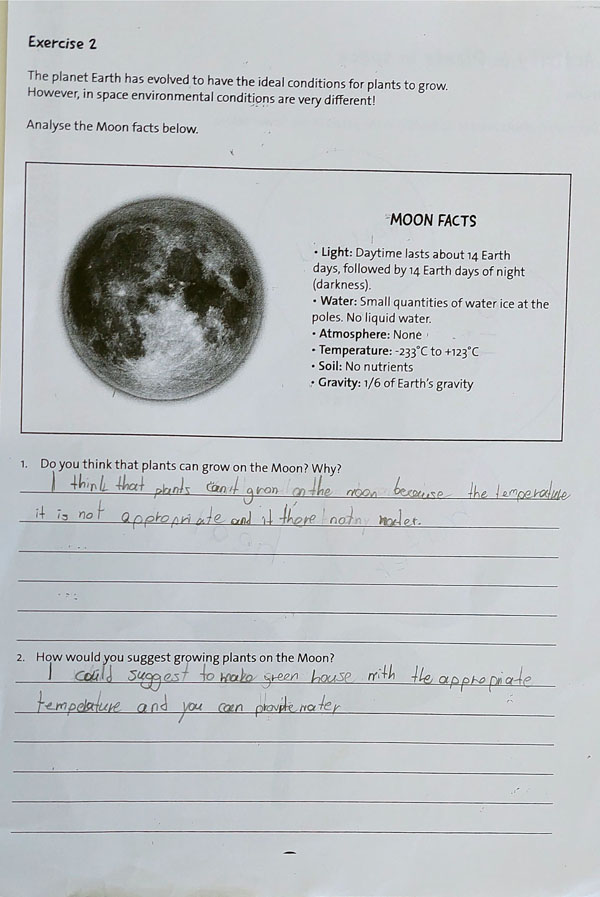 Exercise 2
The planet Earth has evolved to have the ideal conditions for plants to grow.
However, in space environmental conditions are very different!
Analyse the Moon facts below.
MOON FACTS
• Light: Daytime lasts about 14 Earth
days, followed by 14 Earth days of night
(darkness).
• Water: Small quantities of water ice at the
poles. No liquid water.
• Atmosphere: None
• Temperature: -233°C to +123°C
• Soil: No nutrients
• Gravity: 1/6 of Earth's gravity
1. Do you think that plants can grow on the Moon? Why?
I think that plants can't grow on the moon because the temperature
it is not appropriate and it there not water.
2. How would you suggest growing plants on the Moon?
I could suggest to make green house with the appropriate
temperature and you can water